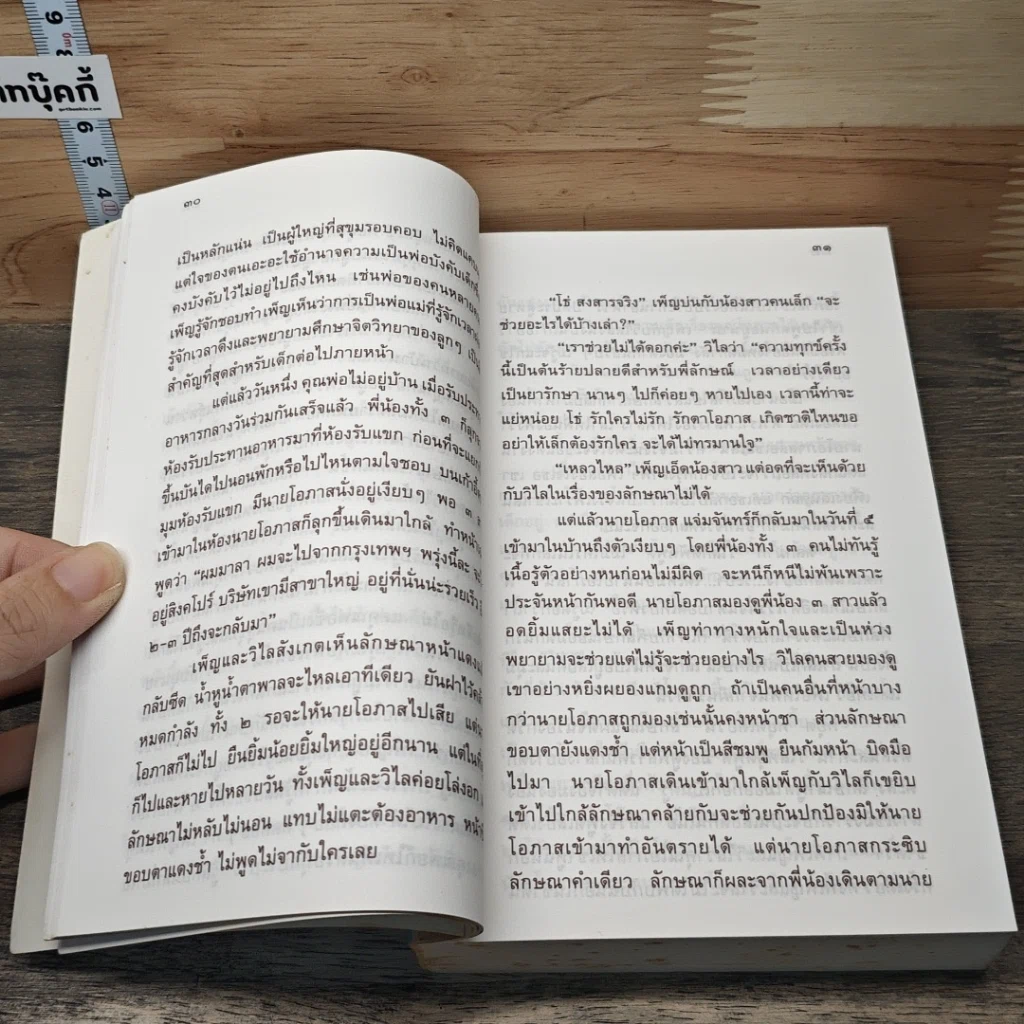 9
8
บุ๊คกี้
6
5
4
๓๐
เป็นหลักแน่น เป็นผู้ใหญ่ที่สุขุมรอบคอบ ไม่คิด
แต่ใจของตนเอะอะใช้อำนาจความเป็นพ่อบังคับ
คงบังคับไว้ไม่อยู่ไปถึงไหน เช่นพ่อของคน
เพ็ญรู้จักชอบทำ เพ็ญเห็นว่าการเป็นพ่อแม่ที่รู้จักเวลา
รู้จักเวลาตึงและพยายามศึกษาจิตวิทยาของลูกๆ
สำคัญที่สุดสำหรับเด็กต่อไปภายหน้า
แต่แล้ววันหนึ่ง คุณพ่อไม่อยู่บ้าน เมื่อ
อาหารกลางวันร่วมกันเสร็จแล้ว พี่น้องทั้ง ๓
ห้องรับประทานอาหารมาที่ห้องรับแขก ก่อนที่จะ
ขึ้นบันไดไปนอนพักหรือไปไหนตามใจชอบ บนเก้าอี้
มุมห้องรับแขก มีนายโอภาสนั่งอยู่เงียบๆ พอ ๓
เข้ามาในห้องนายโอภาสก็ลุกขึ้นเดินมาใกล้
พูดว่า “ผมมาลา ผมจะไปจากกรุงเทพฯ พรุ่งนี้ละ
อยู่สิงคโปร์ บริษัทเขามีสาขาใหญ่ อยู่ที่นั่นน่ะรวยเร็ว
๒-๓ ปีถึงจะกลับมา”
เพ็ญและวิไลสังเกตเห็นลักษณาหน้าแดง
กลับซีด น้ำหูน้ำตาพาลจะไหลเอาทีเดียว ยันฝาไว้
หมดกำลัง ทั้ง ๒ รอจะให้นายโอภาสไปเสีย
โอภาสก็ไม่ไป ยืนยิ้มน้อยยิ้มใหญ่อยู่อีกนาน
ก็ไปและหายไปหลายวัน ทั้งเพ็ญและวิไลค่อยโล่งอก
ลักษณาไม่หลับไม่นอน แทบไม่แตะต้องอาหาร
ขอบตาแดงช้ำ ไม่พูดไม่จากับใครเลย
๓๑
“โธ่ สงสารจริง” เพ็ญบ่นกับน้องสาวคนเล็ก “จะ
ช่วยอะไรได้บ้างเล่า?”
“เราช่วยไม่ได้ดอกค่ะ” วิไลว่า “ความทุกข์ครั้ง
นี้เป็นต้นร้ายปลายดีสำหรับพี่ลักษณ์ เวลาอย่างเดียว
เป็นยารักษา นานๆ ไปก็ค่อยๆ หายไปเอง เวลานี้ท่าจะ
แย่หน่อย โธ่ รักใครไม่รัก รักตาโอภาส เกิดชาติไหนขอ
อย่าให้เล็กต้องรักใคร จะได้ไม่ทรมานใจ”
“เหลวไหล” เพ็ญเอ็ดน้องสาว แต่อดที่จะเห็นด้วย
กับวิไลในเรื่องของลักษณาไม่ได้
แต่แล้วนายโอภาส แจ่มจันทร์ก็กลับมาในวันที่ ๕
เข้ามาในบ้านถึงตัวเงียบๆ โดยพี่น้องทั้ง ๓ คนไม่ทันรู้
เนื้อรู้ตัวอย่างหนก่อนไม่มีผิด จะหนีก็หนีไม่พ้นเพราะ
ประจันหน้ากันพอดี นายโอภาสมองดูพี่น้อง ๓ สาวแล้ว
อดยิ้มแสยะไม่ได้ เพ็ญท่าทางหนักใจและเป็นห่วง
พยายามจะช่วยแต่ไม่รู้จะช่วยอย่างไร วิไลคนสวยมองดู
เขาอย่างหยิ่งผยองแกมดูถูก ถ้าเป็นคนอื่นที่หน้าบาง
กว่านายโอภาสถูกมองเช่นนั้นคงหน้าชา ส่วนลักษณา
ขอบตายังแดงช้ำ แต่หน้าเป็นสีชมพู ยืนก้มหน้า บิดมือ
ไปมา นายโอภาสเดินเข้ามาใกล้เพ็ญกับวิไลก็เขยิบ
เข้าไปใกล้ลักษณาคล้ายกับจะช่วยกันปกป้องมิให้นาย
โอภาสเข้ามาทำอันตรายได้ แต่นายโอภาสกระซิบ
ลักษณาคำเดียว ลักษณาก็ผละจากพี่น้องเดินตามนาย